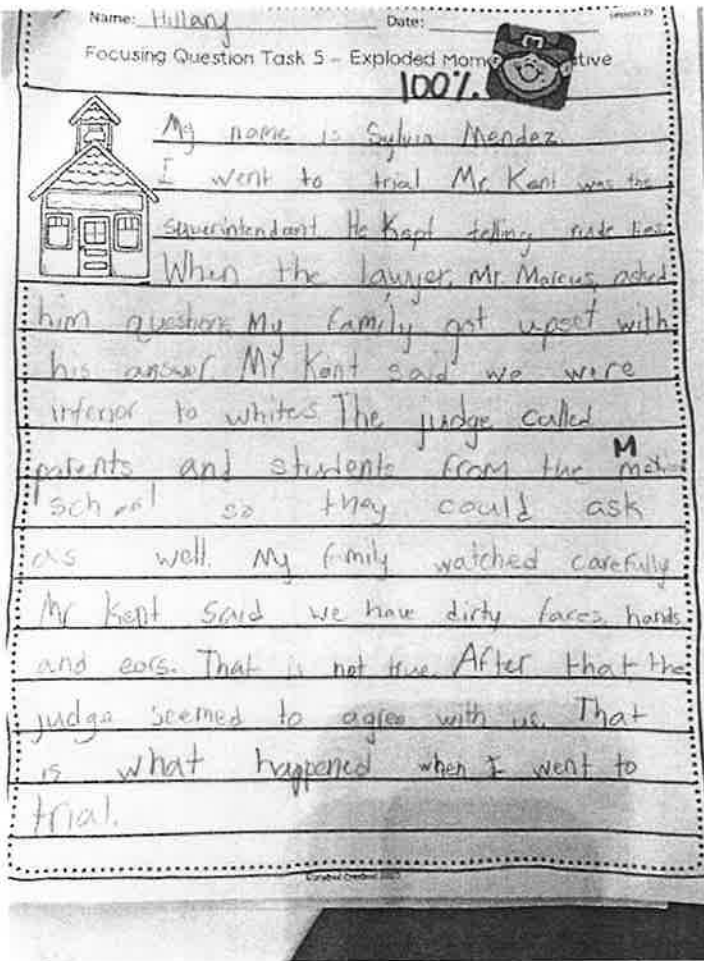 Name: Hillany Date:
Lesson 29
Focusing Question Task 5 – Exploded Mome tive
100%.
My name is Sylvia Mendez.
I went to trial Mr. Kent was the
squerintendant. He Kept telling rude lies.
When the lawyer, Mr. Marcus, asked
him questions My family got upset with
his answer. Mr Kent said we were
inferior to whites The judge called
parents and students from the M
school so they could ask
as well. My family watched carefully
Mr Kent Said we have dirty faces, hands
and ears. That is not true. After that the
judge seemed to agree with us. That
is what happened when I went to
trial.